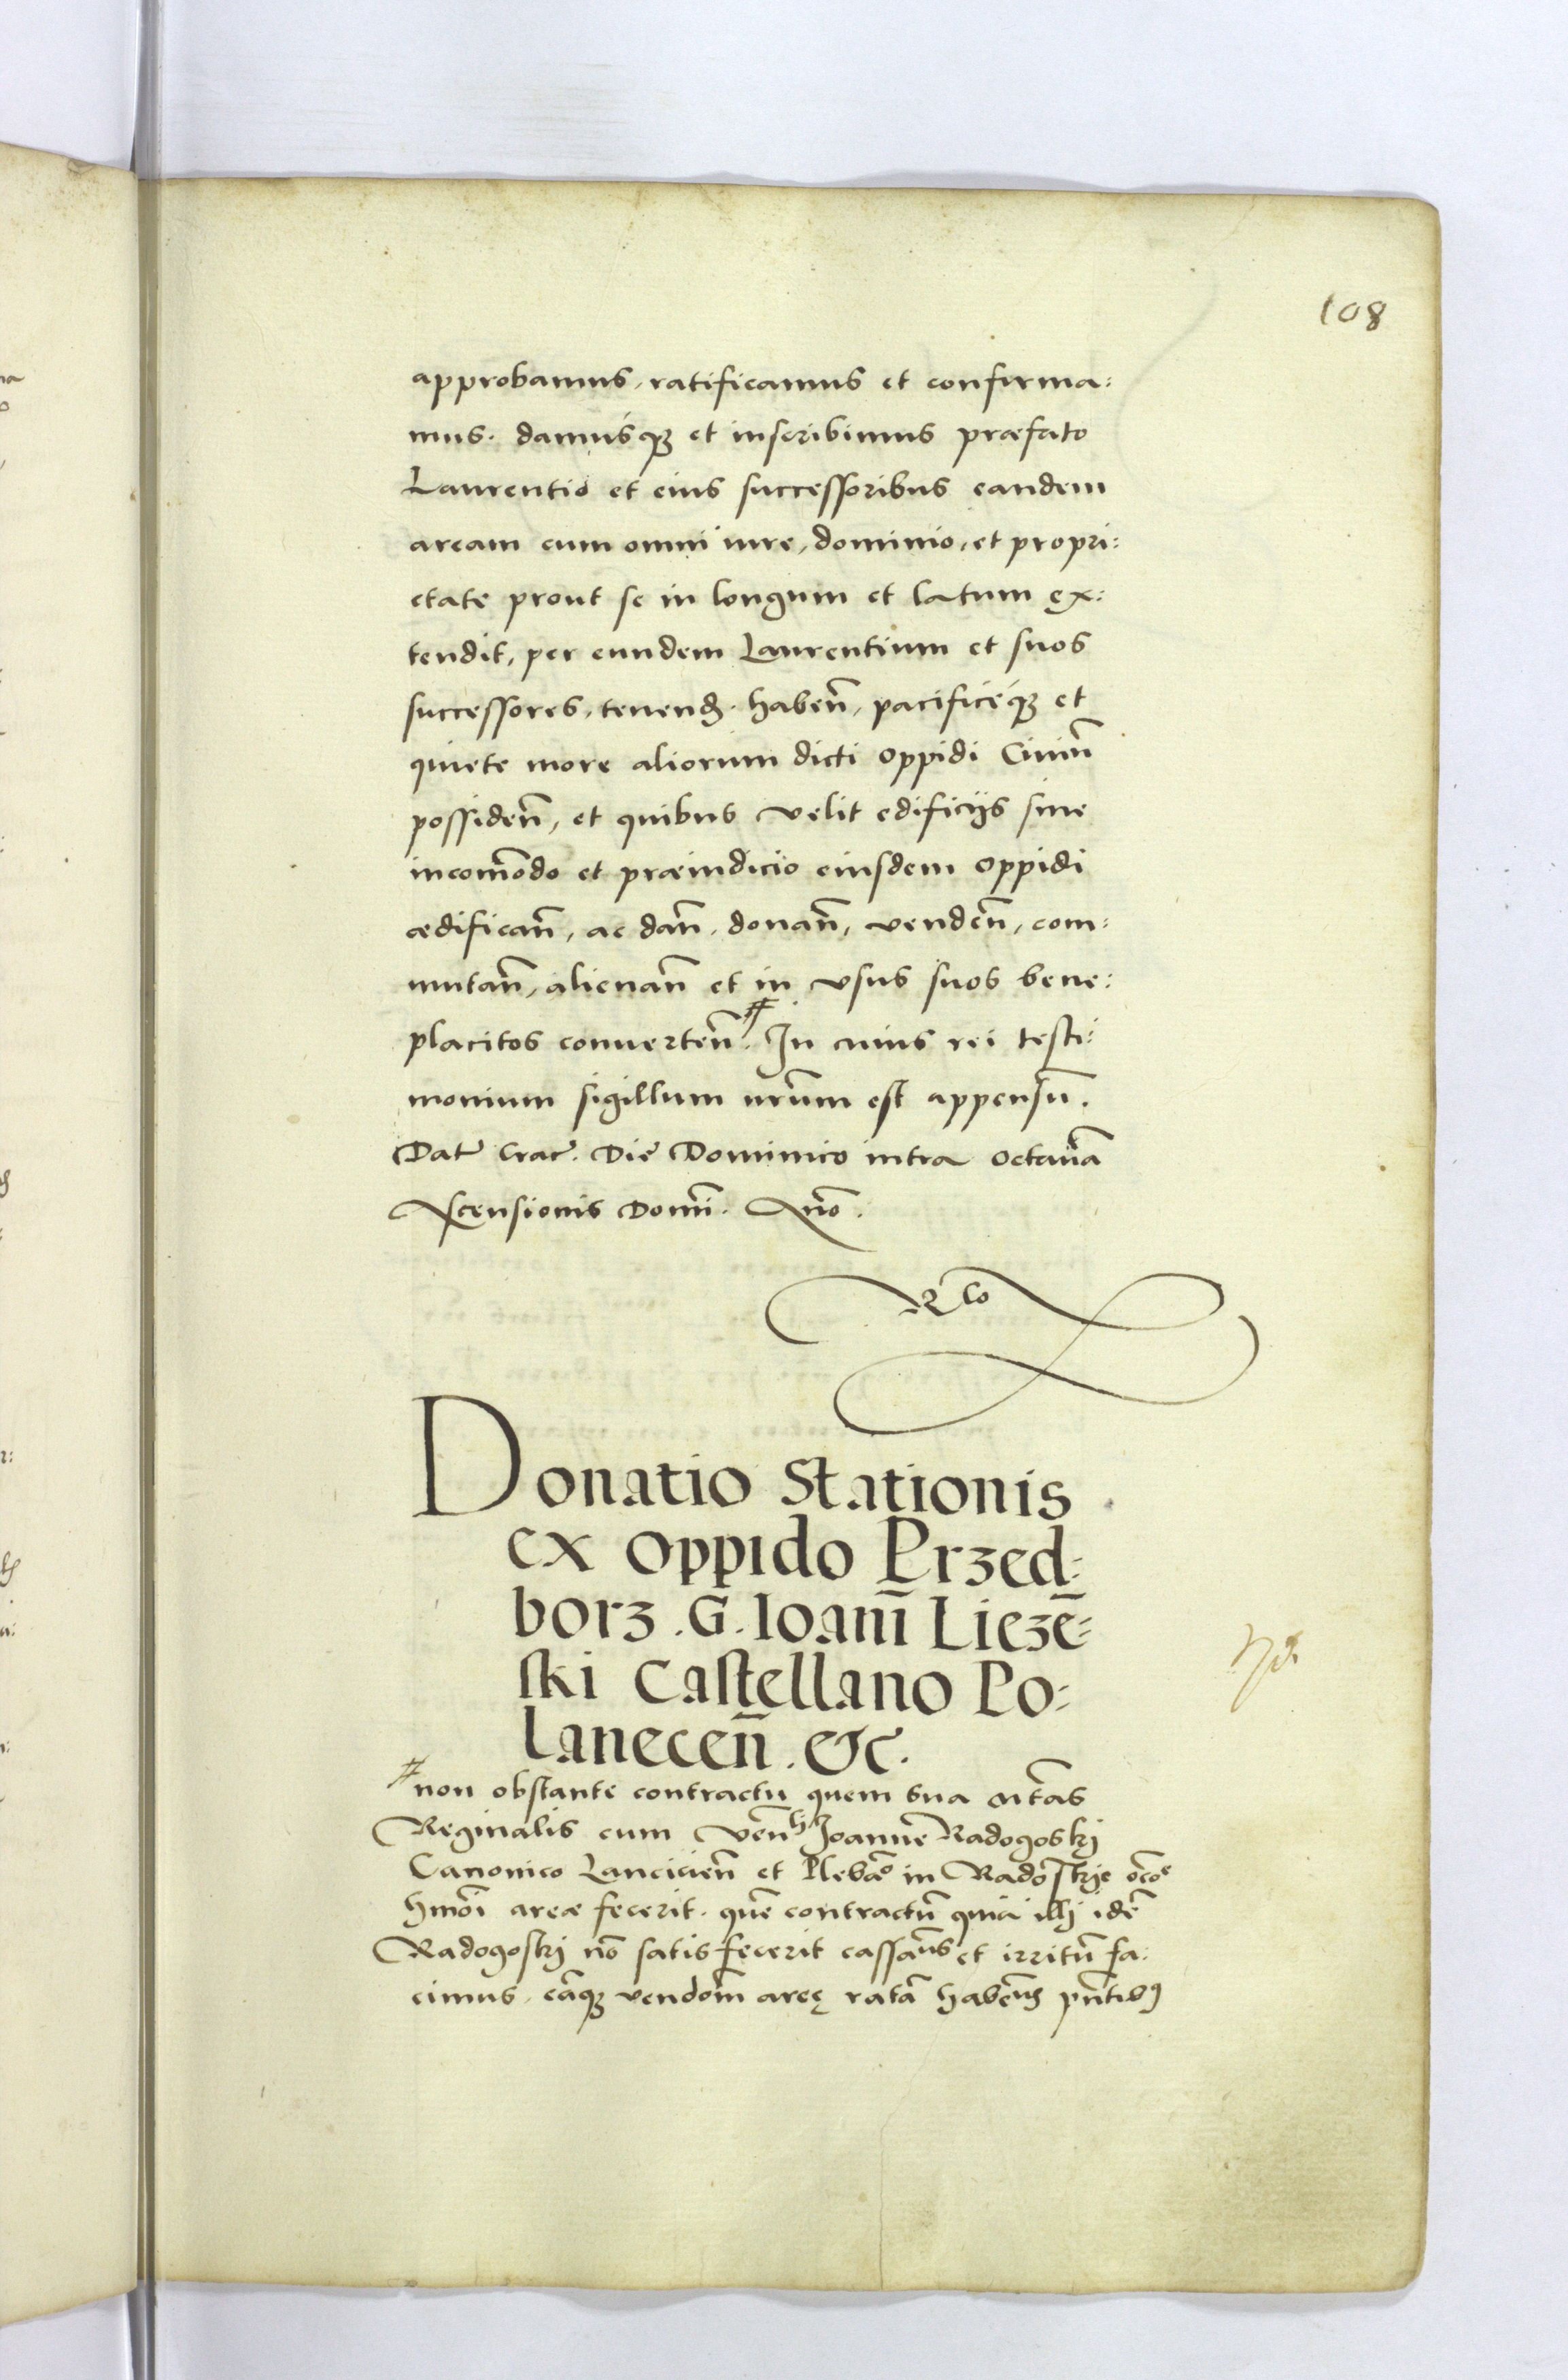 108
approbamus, ratificamus et confirma:
mus. damusq₃ et inscribimus præfato
Laurentio et eius successoribus eandem
aream cum omni iure, dominio, et propri:
etate prout se in longum et latum ex:
tendit, per eundem Laurentium et suos
successores, tenend. haben̄, pacificeq₃ et
quiete more aliorum dicti oppidi Ciuiū
possiden̄, et quibus velit edificijs sine
incom̄odo et præiudicio eiusdem oppidi
ædifican̄, ac dan̄, donan̄, venden̄, com:
mutan̄, alienan̄ et in vsus suos bene:
placitos conuerten̄.# In cuius rei testi:
monium sigillum nr̄um est appensū.
Dat Crac. Die Dominico intra octauā
Ascensionis Domi. An̄o.
Rlo
Donatio Stationis
ex oppido Przed:
borz. G. Ioan̄i Liezē:
ski Castellano Po:
lanecen̄. &c.
#non obstante contractu quem sua Mtas
Reginalis cum ven̄li Joanne Radogoskj
Canonico Lancicien̄ et Plebāo in Radoskije
hmōi areæ fecerit. quē contractū quia illj idē
Radogoskj nō satisfecerit cassam̄s et irritū fa:
cimus. eāq₃ vendōm areę ratā habem̄s pn̄tib9